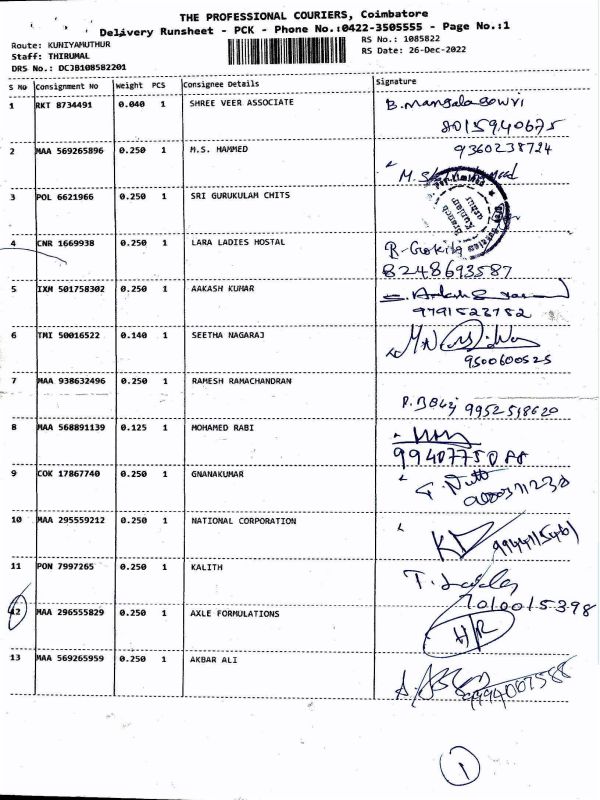 THE PROFESSIONAL COURIERS, Coimbatore
Delivery Runsheet - PCK - Phone No.:0422-3505555 - Page No.:1
Route: KUNIYAMUTHUR
RS No.: 1085822
Staff: THIRUMAL
RS Date: 26-Dec-2022
DRS No.: DCJB108582201
S No Consignment No Weight PCS Consignee Details Signature
1 RKT 8734491 0.040 1 SHREE VEER ASSOCIATE B. Mangalagowri
8015940675
2 MAA 569265896 0.250 1 M.S. HAMMED 9360238724
3 POL 6621966 0.250 1 SRI GURUKULAM CHITS
4 CNR 1669938 0.250 1 LARA LADIES HOSTAL R-Gokila
8248693587
5 IXM 501758302 0.250 1 AAKASH KUMAR
9791523752
6 TMI 50016522 0.140 1 SEETHA NAGARAJ
9500600525
7 MAA 938632496 0.250 1 RAMESH RAMACHANDRAN
9952518620
8 MAA 568891139 0.125 1 MOHAMED RABI
9 COK 17867740 0.250 1 GNANAKUMAR
10 MAA 295559212 0.250 1 NATIONAL CORPORATION
11 PON 7997265 0.250 1 KALITH
7010015398
12 MAA 296555829 0.250 1 AXLE FORMULATIONS H/R
13 MAA 569265959 0.250 1 AKBAR ALI
1